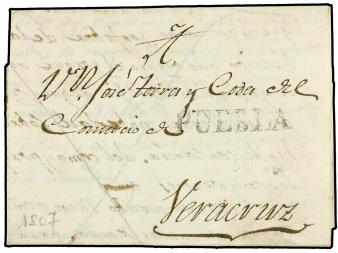 Dn. José Torre y Cosa del
Comercio de
PUEBLA
Veracruz
1807